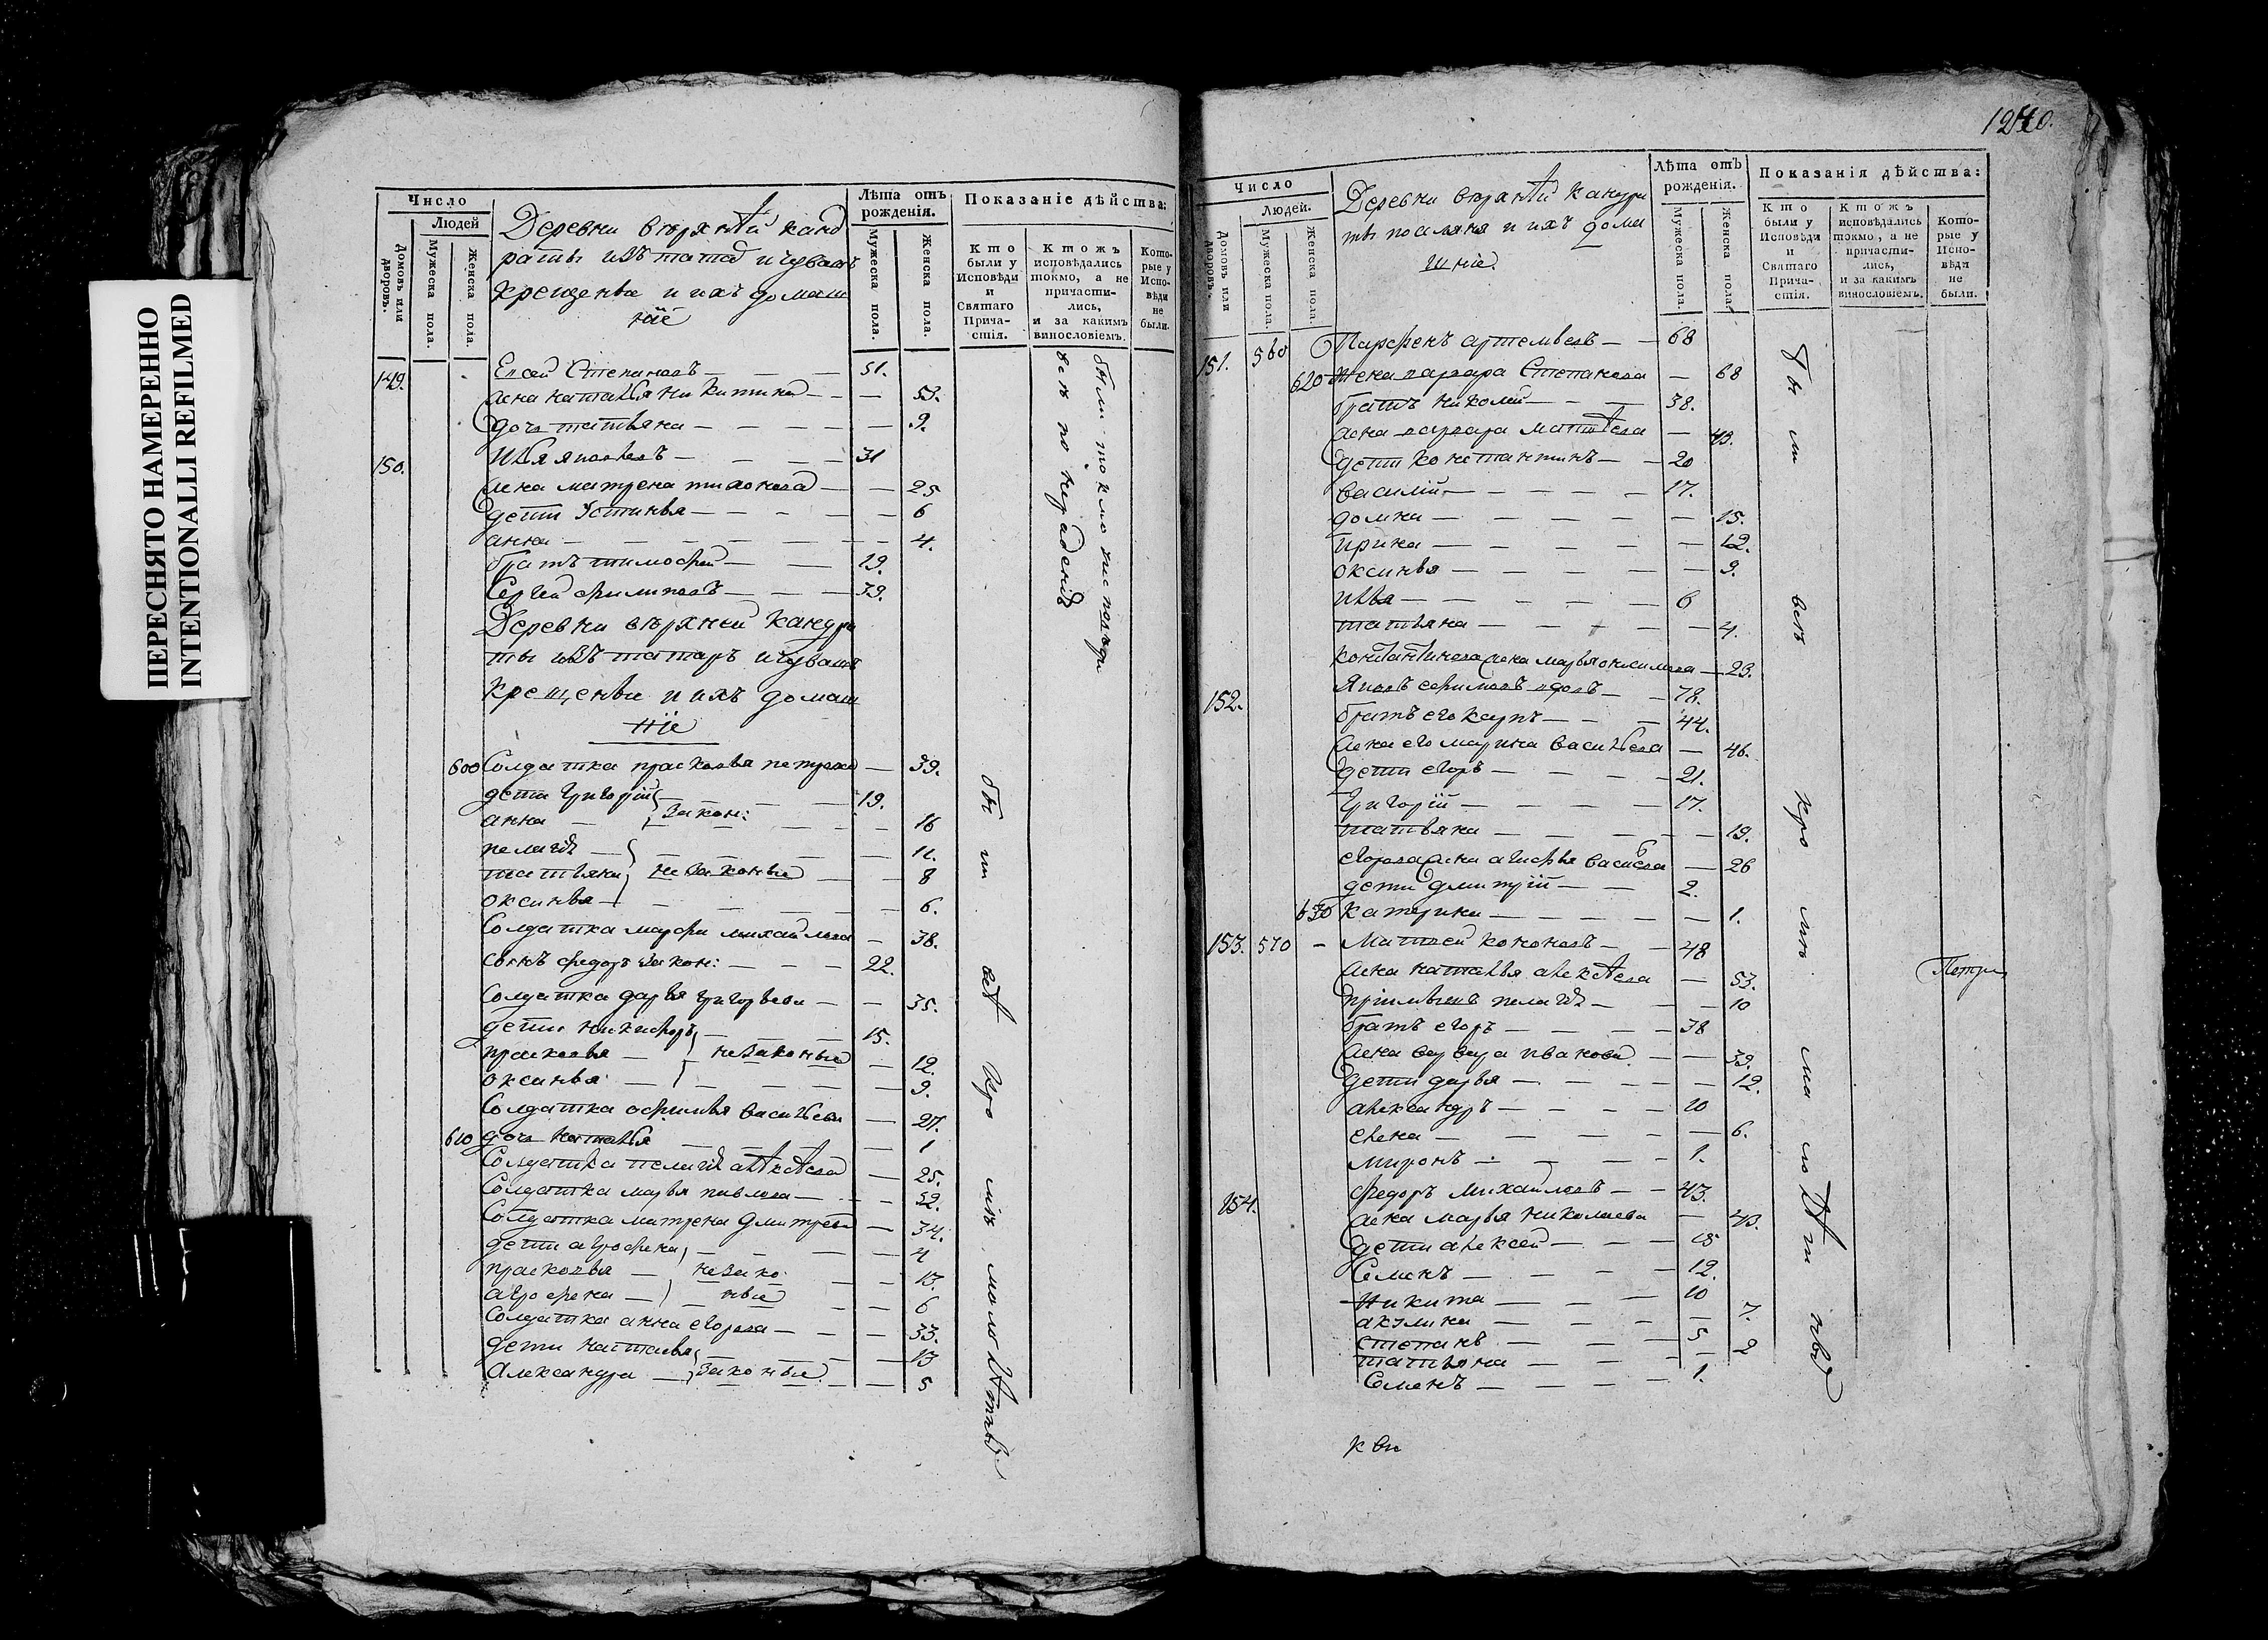 ПЕРЕСНЯТО НАМЕРЕННО
INTENTIONALLI REFILMED
Число
Людей
Домовъ или дворовъ.
Мужеска пола.
Женска пола.
Деревни верхнѣй канд
раты изъ татаръ и чувашъ
крещенье и ихъ домаш
ніе
Лѣта отъ рожденія.
Мужеска пола.
Женска пола.
Показаніе дѣйства:
Кто были у Исповѣди и Святаго Прича-стія.
Ктожъ исповѣдались токмо, а не причасти-лись, и за какимъ винословіемъ.
Кото-рые у Испо-вѣди не были.
149. Елсей Степановъ — 51.
жена наталья никитина — 53.
дочь татьяна — 9.
150. Илья яковлевъ — 31
жена матрена тихонова — 25
дети Устинья — 6
анна — 4.
братъ тимофей — 19.
Сергей филиповъ — 39.
Деревни верхней кандра
ты изъ татаръ и чувашъ
крещенье и ихъ домаш
ніе
600 Солдатка прасковья петрова — 39.
дети григорій — 19.
анна — закон: — 16
пелагея — 11.
татьяна незаконные — 8
оксинья — 6.
Солдатка марфа михайлова — 38.
сынъ федоръ закон: — 22.
Солдатка дарья григорьева — 35.
дети никифоръ — 15.
прасковья — незаконные — 12.
оксинья — 9.
Солдатка офимья васильева — 27.
610 дочь наталья — 1
Солдатка пелагея алѣксѣева — 25.
Солдатка марья павлова — 52.
Солдатка матрена дмитрева — 34.
дети агрофена — 4
прасковья — незако — 13.
агрофена — ные — 6
Солдатка анна егорова — 33.
дети наталья — 13
александра — законные — 5
были токмо на исповеди
все по нерадению
были все кроме малолѣтныхъ
1240.
Число
Людей.
Домовъ или дворовъ.
Мужеска пола.
Женска пола.
Деревни верхнѣй кандра
ты посляня и ихъ дома
шніе.
Лѣта отъ рожденія.
Мужеска пола.
Женска пола.
Показанія дѣйства:
Кто были у Исповѣди и Святаго Прича-стія.
Ктожъ исповѣдались токмо, а не причасти-лись, и за какимъ винословіемъ.
Кото-рые у Испо-вѣди не были.
151. 560 Парфенъ артемьевъ — 68
620 жена варвара Степанова — 68
братъ николай — 38.
жена варвара матвѣева — 43.
дети константинъ — 20
василій — 17.
домна — 15.
ирина — 12.
оксинья — 9.
илья — 6
татьяна — 4.
константинова жена марья онисимова — 23.
152. Яковъ ефимовъ вдовъ — 78.
братъ его карпъ — 44.
жена его марина васильева — 46.
дети егоръ — 21.
григорій — 17.
татьяна — 19.
егорова жена агафья васильева — 26
дети дмитрій — 2.
630 катерина — 1.
153. 570 Матвей кононовъ — 48
жена наталья алексѣева — 53.
пріимышъ пелагея — 10
братъ егоръ — 38
жена варвара иванова — 39.
дети дарья — 12.
александръ — 10
елена — 6.
миронъ — 1.
154. федоръ михайловъ — 43.
жена марья николаева — 43.
дети алексей — 15
Семенъ — 12.
Никита — 10
акулина — 7.
степанъ — 5
татьяна — 2
Семенъ — 1.
были все кроме малолѣтныхъ
к вы